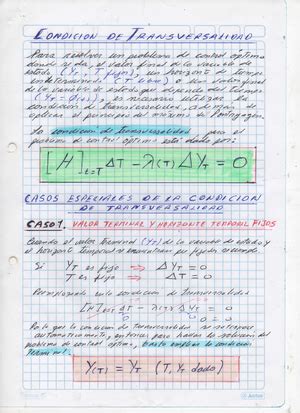 CONDICION DE TRANSVERSALIDAD
Para resolver un problema de control optimo
donde se da el valor final de la variable de
estado (YT, T fijos), un horizonte de tiempo
indeterminado (T libre) o un valor final
de la variable de estado que depende del tiempo
(YT = φ(T)), es necesario utilizar la
condición de transversalidad, además de
aplicar el principio del máximo de Pontryagin.
La condición de transversalidad para el
problema de control optimo está dado por:
[H]t=T ΔT - λ(T) ΔYT = 0
CASOS ESPECIALES DE LA CONDICION
DE TRANSVERSALIDAD
CASO 1. VALOR TERMINAL Y HORIZONTE TEMPORAL FIJOS
Cuando el valor terminal (YT) de la variable de estado y
el horizonte temporal se encuentran fijos
Si YT es fijo ⇒ ΔYT = 0
T es fijo ⇒ ΔT = 0
Reemplazando en la condición de transversalidad
[H]t=T ΔT - λ(T) ΔYT = 0
Por lo que la condición de transversalidad se satisface
automáticamente, entonces para hallar la solución del
problema de control optimo, basta emplear la condición
terminal:
Y(T) = YT (T, YT dado)